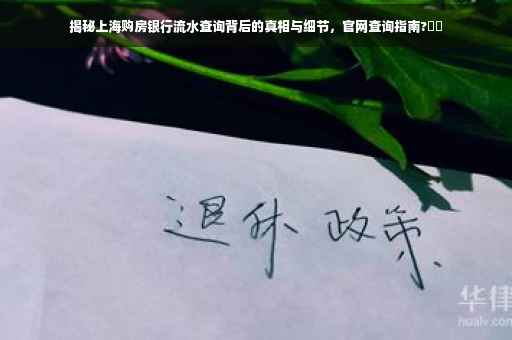 揭秘上海购房银行流水查询背后的真相与细节，官网查询指南?
退休 政策
华律
hualv.com